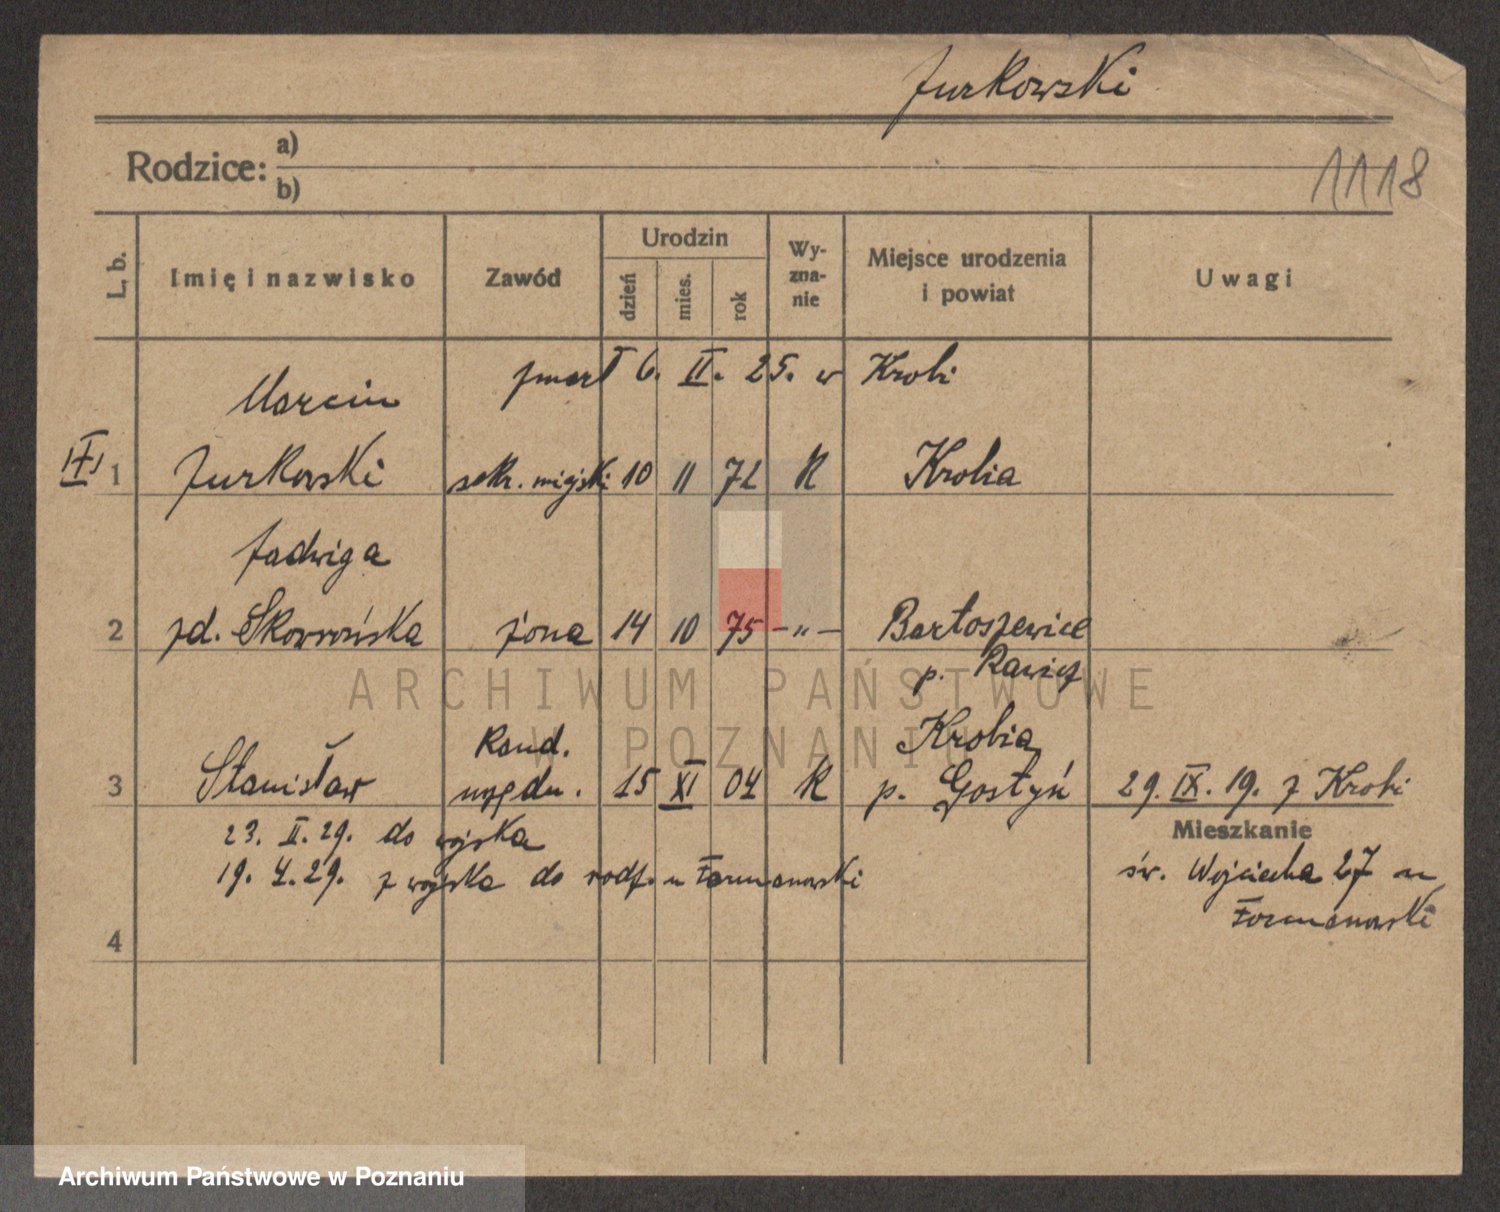 Jurkowski
1118
Rodzice: a)
b)
L. b.
Imię i nazwisko
Zawód
Urodzin
dzień
mies.
rok
Wy-
zna-
nie
Miejsce urodzenia
i powiat
Uwagi
zmarł 6. II. 25. w Krobi
Marcin
1 Jurkowski sekr. miejski 10 11 72 K Krobia
Jadwiga
2 zd. Skowrońska żona 14 10 75 -"- Bartoszewice
p. Rawicz
Kand. Krobia
3 Stanisław urzędn. 15 XI 04 K p. Gostyń 29. IX. 19. z Krobi
Mieszkanie
23. II. 29. do wojska
19. 4. 29. z wojska do rodz. u Furmanowski
św. Wojciecha 27 u
Furmanowski
4
ARCHIWUM PAŃSTWOWE
W POZNANIU
Archiwum Państwowe w Poznaniu